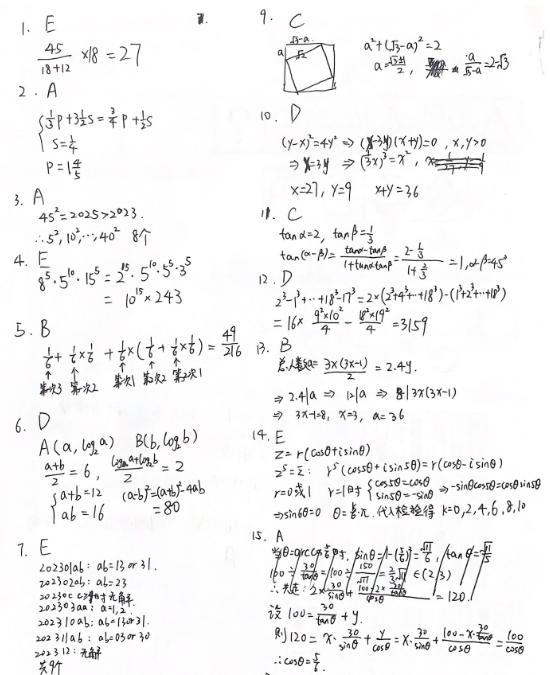 1. E
45/(18+12) ×18 = 27
2. A
{ 1/3 P + 3 1/2 S = 3/4 P + 1/2 S
S = 1/4
P = 1 4/5
3. A
45² = 2025 > 2023.
∴ 5², 10², ⋯, 40² 8个
4. E
8⁵ · 5¹⁰ · 15⁵ = 2¹⁵ · 5¹⁰ · 5⁵ · 3⁵
= 10¹⁵ × 243
5. B
1/6 + 1/6 × 1/6 + 1/6 × (1/6 + 1/6 × 1/6) = 49/216
↑ ↑ ↑ ↑ ↑
第一次3 第二次2 第一次1 第二次2 第二次1
6. D
A(a, log₂a) B(b, log₂b)
(a+b)/2 = 6, (log₂a+log₂b)/2 = 2
{ a+b=12 (a-b)²=(a+b)²-4ab
ab=16 =80
7. E
202301ab: ab=13 or 31.
202302ab: ab=23
202303aa: a=1,2.
202310ab: ab=13 or 31.
202311ab: ab=03 or 30
202312: 无解
共9个
9. C
√3-a
a √2
a²+(√3-a)²=2
=2-√3
10. D
(y-x)²=4y² ⇒ (x-3y)(x+y)=0, x,y>0
⇒ x=3y ⇒ (1/3 x)³=x²,
x=27, y=9 x+y=36
11. C
tanα=2, tanβ=1/3
tan(α-β) = (tanα-tanβ)/(1+tanαtanβ) = (2-1/3)/(1+2/3) = 1, α-β=45°
12. D
2³-1³+⋯+18³-17³ = 2×(2³+4³+⋯+18³)-(1³+2³+⋯+18³)
= 16× (9²×10²)/4 - (18²×19²)/4 = 3159
13. B
3x(3x-1)/2 = 2.4a.
⇒ 2.4|a ⇒ 12|a ⇒ 8|3x(3x-1)
⇒ 3x-1=8, x=3, a=36
14. E
z=r(cosθ+isinθ)
z⁵=z̄: r⁵(cos5θ+isin5θ)=r(cosθ-isinθ)
r=0或1 r=1时 { cos5θ=cosθ sin5θ=-sinθ ⇒ -sinθcos5θ=cosθsin5θ
⇒ sin6θ=0 代入检验得 k=0,2,4,6,8,10
15. A
=120.
设 100 = 30/tanθ + y.
则 120 = x· 30/sinθ + y/cosθ = x· 30/sinθ + (100-x· 30/tanθ)/cosθ = 100/cosθ
∴ cosθ = 5/6.